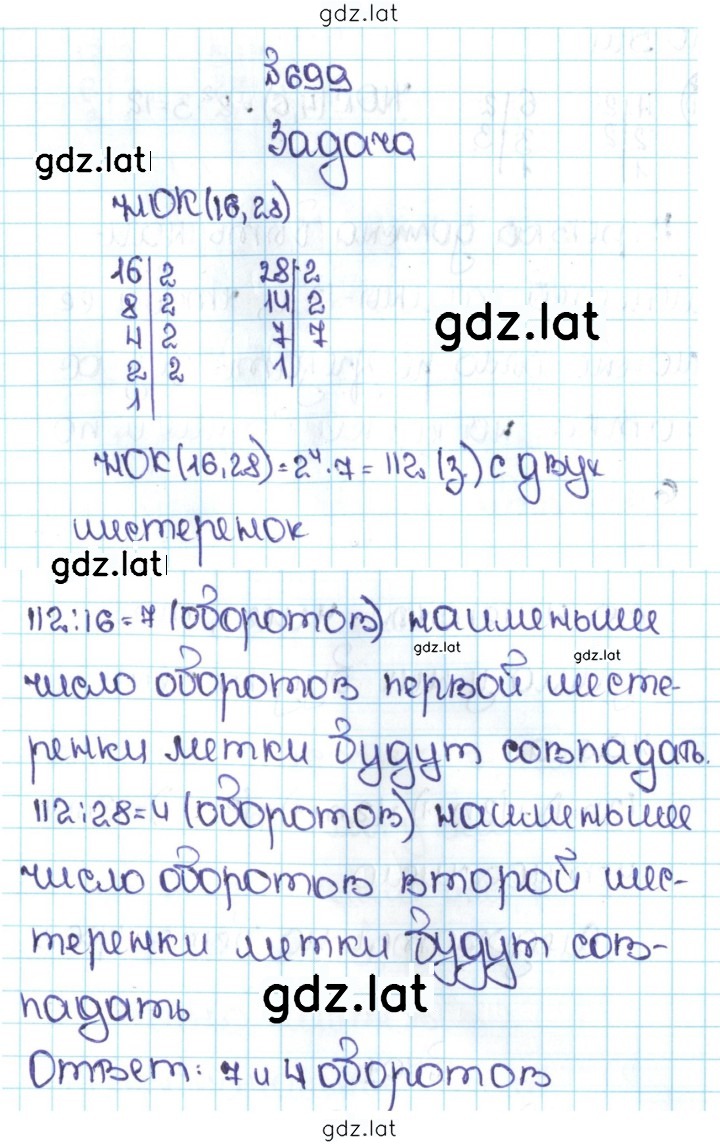 gdz.lat
№699
Задача
gdz.lat
НОК(16,28)
16|2 28|2
8|2 14|2
4|2 7|7
2|2 1|
1|
gdz.lat
НОК(16,28)=2⁴·7=112 (з.) с двух
шистеренок
gdz.lat
112:16=7 (оборотов) наименьшее
gdz.lat
gdz.lat
число оборотов первой шесте-
ренки метки будут совпадать.
112:28=4 (оборотов) наименьшее
число оборотов второй шес-
теренки метки будут сов-
падать
gdz.lat
Ответ: 7 и 4 оборотов
gdz.lat